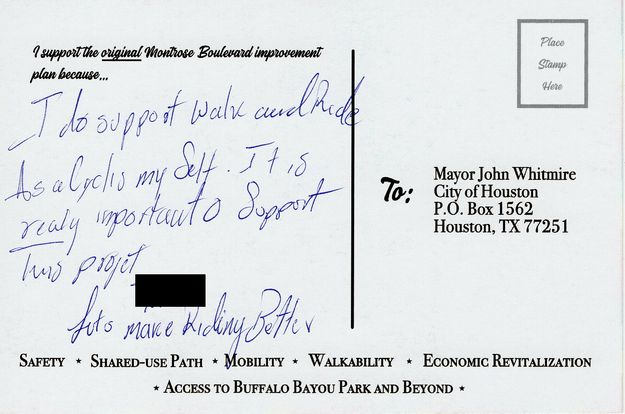 I support the original Montrose Boulevard improvement
plan because...
I do support walk and Ride
As a Cyclis my Self. It is
realy important to Support
This projet
lets make Riding Better
Place
Stamp
Here
To:
Mayor John Whitmire
City of Houston
P.O. Box 1562
Houston, TX 77251
SAFETY ★ SHARED-USE PATH ★ MOBILITY ★ WALKABILITY ★ ECONOMIC REVITALIZATION
★ ACCESS TO BUFFALO BAYOU PARK AND BEYOND ★